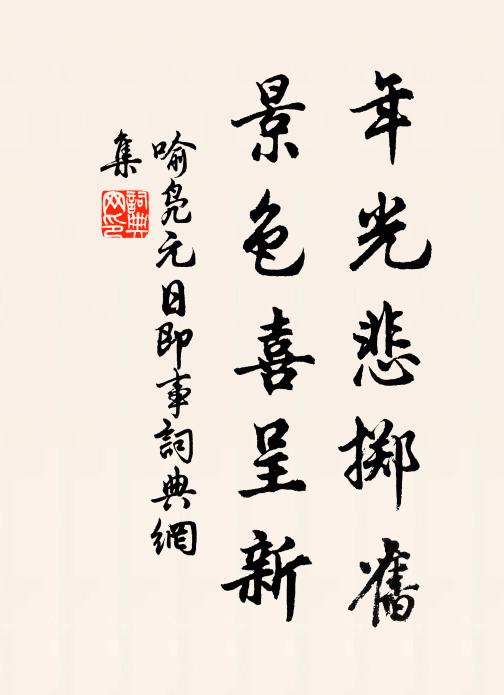 年光悲掷舊
景色喜呈新
喻凫元日即事詞典網
集
詞典
网印